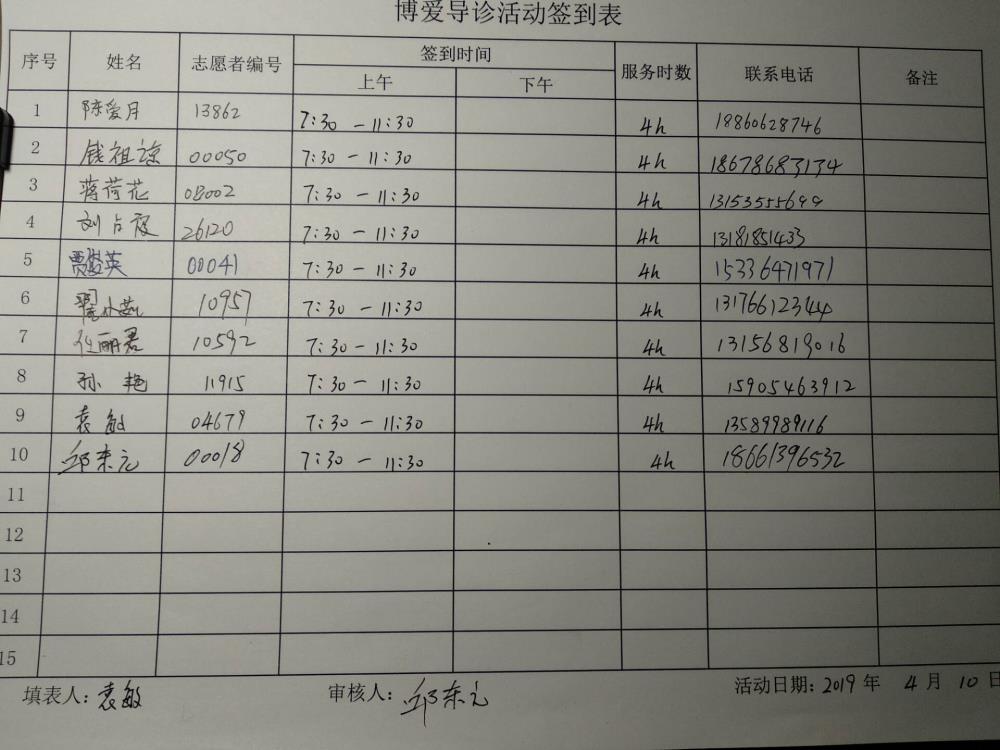 博爱导诊活动签到表
序号 姓名 志愿者编号 签到时间 服务时数 联系电话 备注
上午 下午
1 陈爱月 13862 7:30-11:30 4h 18860628746
2 钱祖谅 00050 7:30-11:30 4h 18678683134
3 蒋荷花 08002 7:30-11:30 4h 13153555699
4 刘占霞 26120 7:30-11:30 4h 13181851433
5 贾 英 00041 7:30-11:30 4h 15336471971
6 翟小燕 10957 7:30-11:30 4h 13176612344
7 任丽君 10592 7:30-11:30 4h 13156819016
8 孙艳 11915 7:30-11:30 4h 15905463912
9 袁敏 04679 7:30-11:30 4h 13589989116
10 邱东元 00018 7:30-11:30 4h 18661396532
11
12
13
14
15
填表人:袁敏 审核人:邱东元 活动日期:2019年 4月 10日